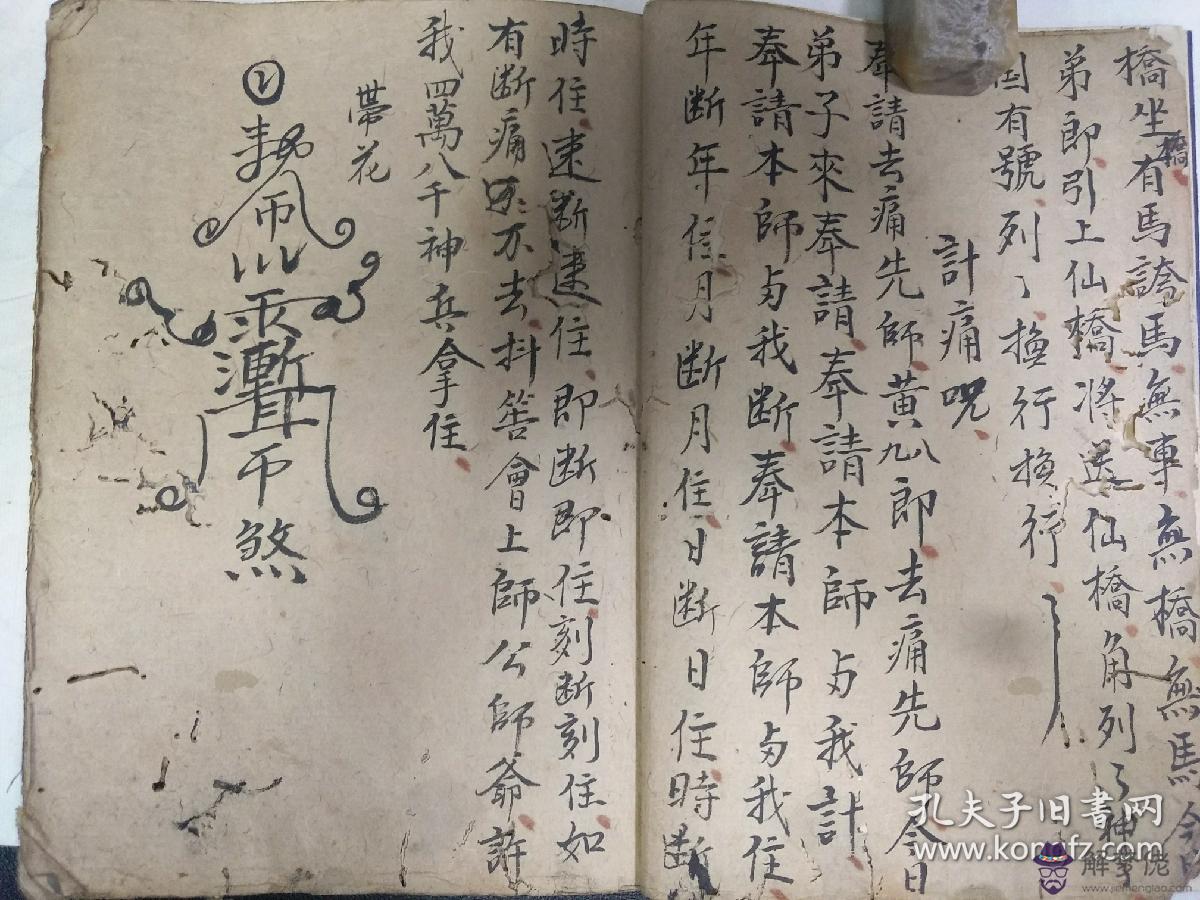 橋坐有馬誇馬無車無橋無馬今日
橋
弟郎引上仙橋將送仙橋角列々神
国有號列々換行換行
計痛咒
奉請去痛先師黃九八郎去痛先師今日
弟子來奉請奉請本師与我計
奉請本師与我断奉請本師与我住
年断年住月断月住日断日住時断
時住速断速住即断即住刻断刻住如
有断痛不去抖答會上師公師爺許
我四萬八千神兵拿住
帶花
煞
孔夫子旧书网
www.kongfz.com
解梦佬
www.jiemenglao.com